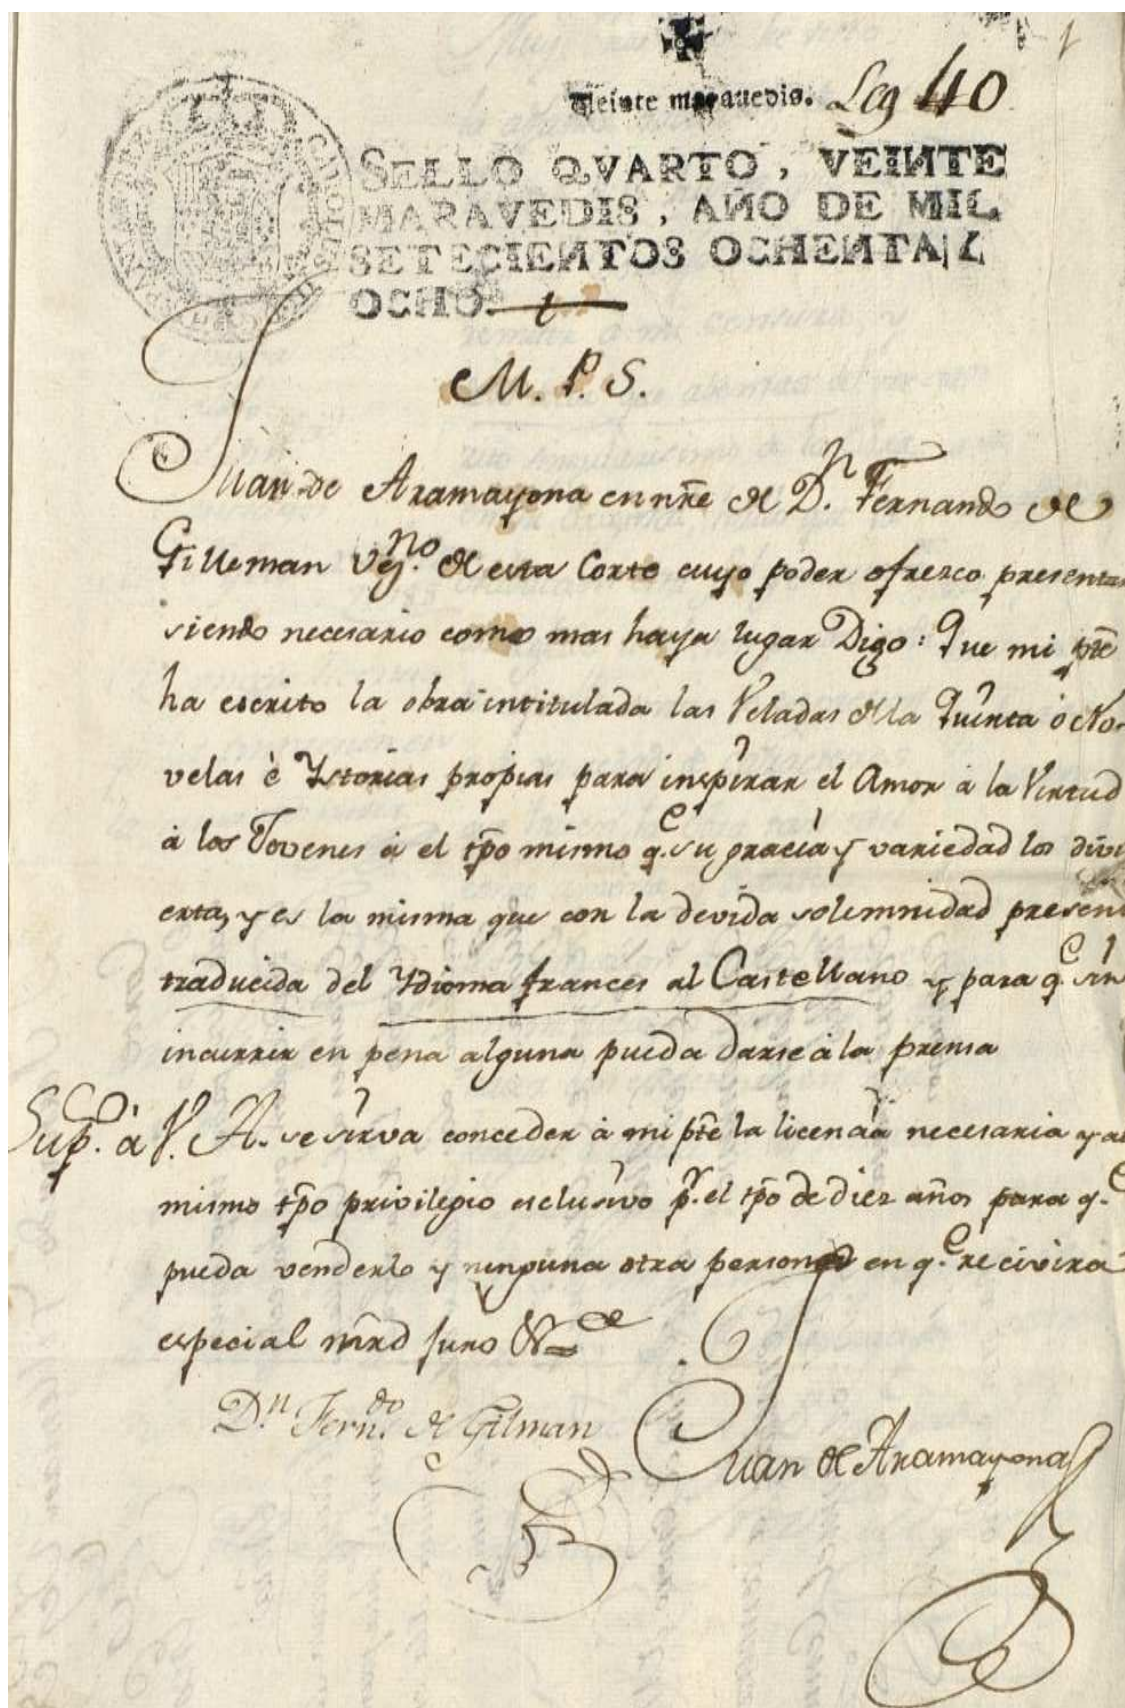 1
Veinte maravedis. Leg 40
SELLO QVARTO, VEINTE
MARAVEDIS, AÑO DE MIL
SETECIENTOS OCHENTA Y
OCHO.
M. P. S.
Juan de Aramayona en nr̃e de D.n Fernando de
Gilleman Vez.no de esta Corte cuyo poder ofrezco presentar
siendo necesario como mas haya lugar Digo: Que mi pte
ha escrito la obra intitulada las Veladas de la Quinta ó No-
velas è Ystorias propias para inspirar el Amor a la Virtud
à los Jovenes à el tp̃o mismo q.e su gracia y variedad los divi
erta, y es la misma que con la devida solemnidad presen
traducida del Ydioma frances al Castellano y para q.e sin
incurrir en pena alguna pueda darse à la prensa
Sup.co à V. A. se sirva conceder à mi pte la licencia necesaria y al
mismo tp̃o privilegio esclusivo p.r el tp̃o de diez años para q.e
pueda venderlo y ninguna otra persona en q.e recivirà
especial mrd juro &
D.n Fern.do de Gilman
Juan de Aramayona